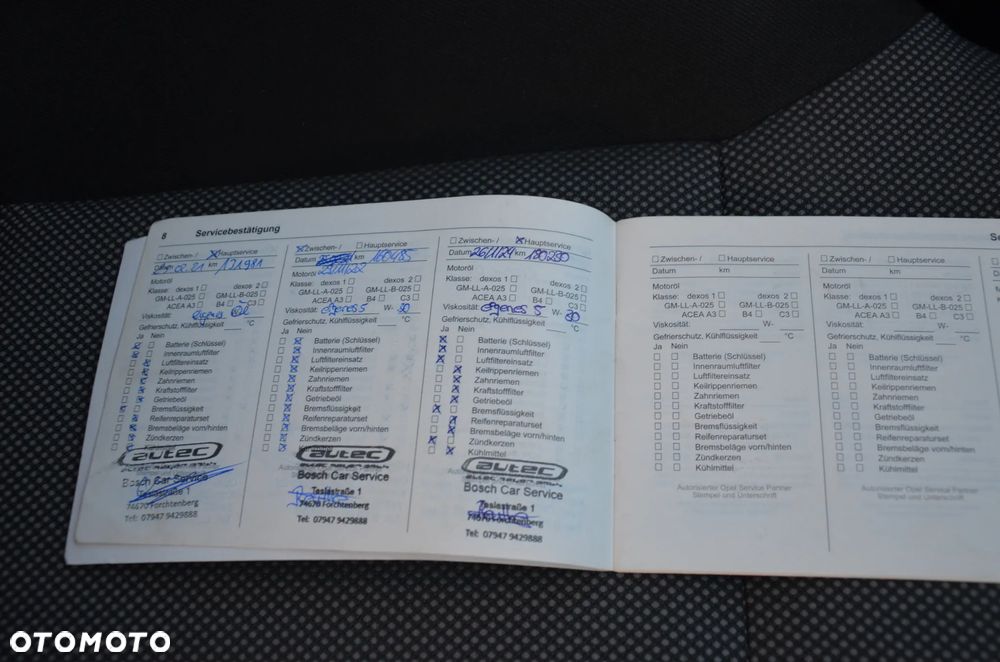 8 Servicebestätigung
☐ Zwischen- / ☒ Hauptservice
02.21 km 131981
Motoröl
Klasse: dexos 1 ☐ dexos 2 ☐
GM-LL-A-025 ☐ GM-LL-B-025 ☐
ACEA A3 ☐ B4 ☐ C3 ☐
Viskosität: eigenes
Gefrierschutz, Kühlflüssigkeit °C
Ja Nein
Batterie (Schlüssel)
Innenraumluftfilter
Luftfiltereinsatz
Keilrippenriemen
Zahnriemen
Kraftstofffilter
Getriebeöl
Bremsflüssigkeit
Reifenreparaturset
Bremsbeläge vorn/hinten
Zündkerzen
autec
Bosch Car Service
Teslastraße 1
74670 Forchtenberg
Tel: 07947 9429888
☒ Zwischen- / ☐ Hauptservice
Datum km 160485
Motoröl
Klasse: dexos 1 ☐ dexos 2 ☐
GM-LL-A-025 ☐ GM-LL-B-025 ☐
ACEA A3 ☐ B4 ☐ C3 ☐
Viskosität: eigenes 5 W- 30
Gefrierschutz, Kühlflüssigkeit °C
Ja Nein
Batterie (Schlüssel)
Innenraumluftfilter
Luftfiltereinsatz
Keilrippenriemen
Zahnriemen
Kraftstofffilter
Getriebeöl
Bremsflüssigkeit
Reifenreparaturset
Bremsbeläge vorn/hinten
Zündkerzen
autec
Bosch Car Service
Teslastraße 1
74670 Forchtenberg
Tel: 07947 9429888
☐ Zwischen- / ☒ Hauptservice
Datum 26/11/24 km 190290
Motoröl
Klasse: dexos 1 ☐ dexos 2 ☐
GM-LL-A-025 ☐ GM-LL-B-025 ☐
ACEA A3 ☐ B4 ☐ C3 ☐
Viskosität: eigenes 5 W- 30
Gefrierschutz, Kühlflüssigkeit °C
Ja Nein
Batterie (Schlüssel)
Innenraumluftfilter
Luftfiltereinsatz
Keilrippenriemen
Zahnriemen
Kraftstofffilter
Getriebeöl
Bremsflüssigkeit
Reifenreparaturset
Bremsbeläge vorn/hinten
Zündkerzen
Kühlmittel
autec
Bosch Car Service
Teslastraße 1
74670 Forchtenberg
Tel: 07947 9429888
☐ Zwischen- / ☐ Hauptservice
Datum km
Motoröl
Klasse: dexos 1 ☐ dexos 2 ☐
GM-LL-A-025 ☐ GM-LL-B-025 ☐
ACEA A3 ☐ B4 ☐ C3 ☐
Viskosität: W-
Gefrierschutz, Kühlflüssigkeit °C
Ja Nein
Batterie (Schlüssel)
Innenraumluftfilter
Luftfiltereinsatz
Keilrippenriemen
Zahnriemen
Kraftstofffilter
Getriebeöl
Bremsflüssigkeit
Reifenreparaturset
Bremsbeläge vorn/hinten
Zündkerzen
Kühlmittel
Autorisierter Opel Service Partner
Stempel und Unterschrift
☐ Zwischen- / ☐ Hauptservice
Datum km
Motoröl
Klasse: dexos 1 ☐ dexos 2 ☐
GM-LL-A-025 ☐ GM-LL-B-025 ☐
ACEA A3 ☐ B4 ☐ C3 ☐
Viskosität: W-
Gefrierschutz, Kühlflüssigkeit °C
Ja Nein
Batterie (Schlüssel)
Innenraumluftfilter
Luftfiltereinsatz
Keilrippenriemen
Zahnriemen
Kraftstofffilter
Getriebeöl
Bremsflüssigkeit
Reifenreparaturset
Bremsbeläge vorn/hinten
Zündkerzen
Kühlmittel
Autorisierter Opel Service Partner
Stempel und Unterschrift
OTOMOTO